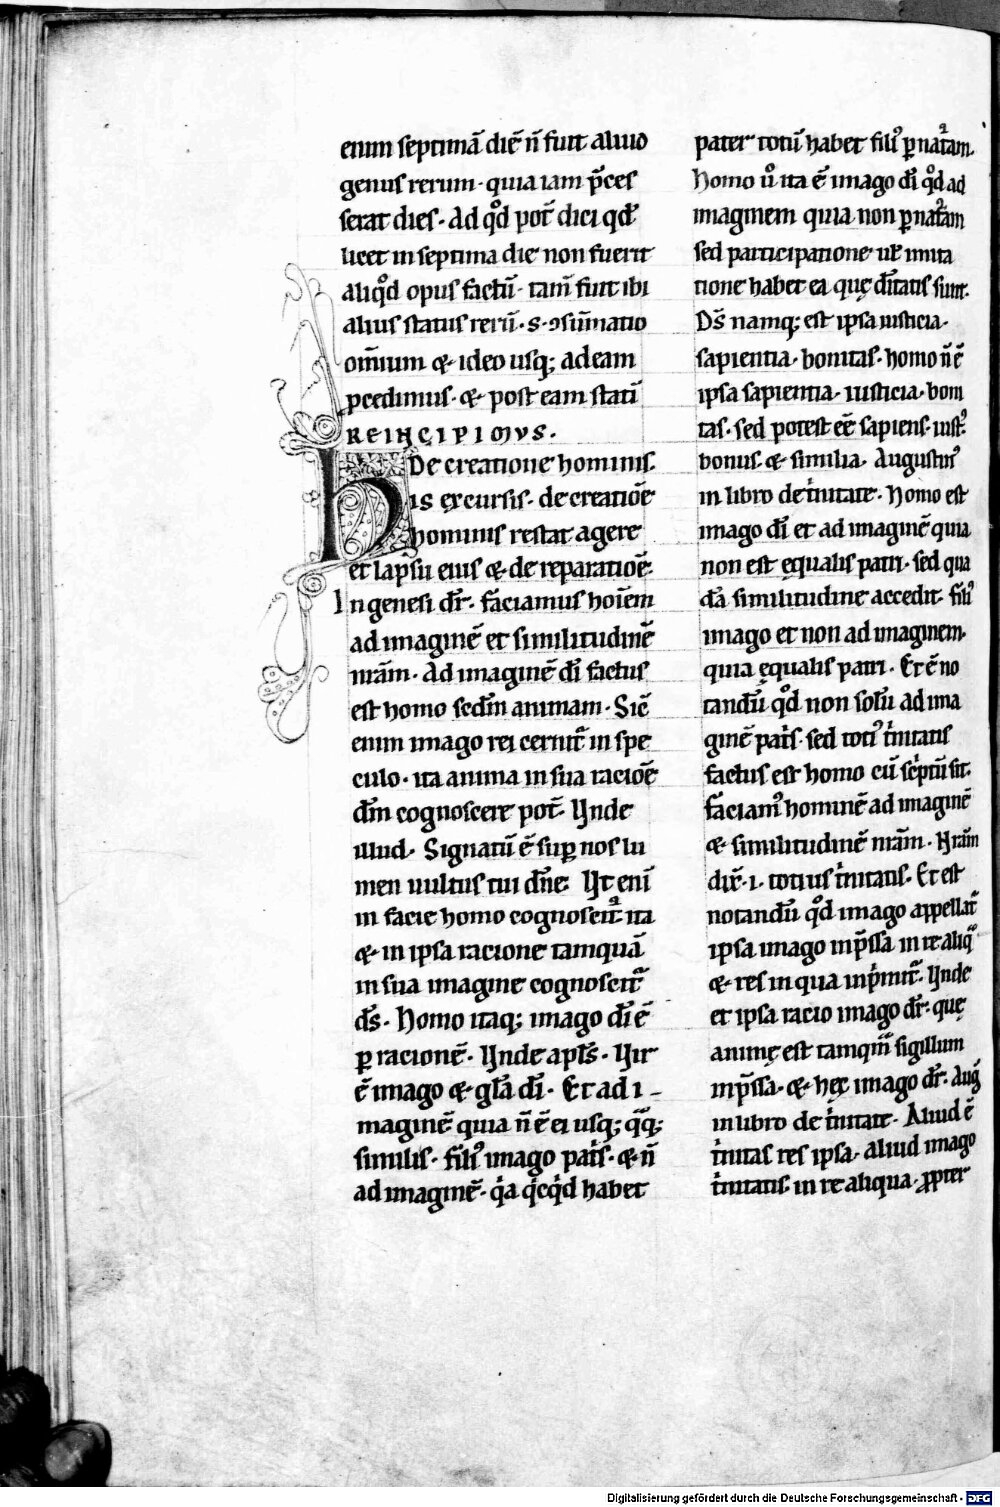 enim septimā diē n̄ fuit aliud
genus rerum · quia iam p̄ces
serat dies · Ad qͦd pot̄ dici qd̄
licet in septima die non fuerit
aliqͦd opus factū · tam̄ fuit ibi
alius status rerū · s · ↄsūmatio
om̄ium & ideo usq; ad eam
p̱cedimus · & post eam statī
REINCIPIMVS .
De creatione hominis.
His excursis · de creatiōe
hominis restat agere
et lapsu eius & de reparatiōe.
In genesi dr̄ · faciamus hoīem
ad imaginē et similitudinē
nr̄am · Ad imaginē dī factus
est homo scdm̄ animam · Sic̄
enim imago rei cernit᷑ in spe
culo · ita anima in sua raciōe
dm̄ cognoscere pot̄ . Unde
illud . Signatū ē sup̱ nos lu
men uultus tui dn̄e . Ut enī
in facie homo cognoscit᷑ ita
& in ipsa racione tamquā
in sua imagine cognoscit᷑
ds̄ . Homo itaq; imago dī ē
p̱ racionē . Unde apls̄ . Vir
ē imago & gl̄a dī . Et ad i-
maginē quia n̄ ē ei usq; qͣq;
similis · filiꝰ imago pat̍s · & n̄
ad imaginē · qͥa qͥcqͥd habet
pater totū habet filiꝰ p̱ nat᷑am.
Homo ū ita ē imago dī qͦd ad
imaginem quia non p̱ nat᷑am
sed participatione ul̄ imita
tione habet ea quę dī̄tatis sunt.
Ds̄ namq; est ipsa iusticia ·
sapientia · bonitas · homo n̄ ē
ipsa sapientia · iusticia · boni
tas · sed potest eē sapiens · iustꝰ
bonus & similia . Augustinꝰ
in libro de tͥnitate . Homo est
imago dī et ad imaginē quia
non est ęqualis patri · sed qua
dā similitudine accedit . filiꝰ
imago et non ad imaginem .
quia ęqualis patri . Et ē no
tandū qͦd non solū ad ima
ginē pat̍s · sed totiꝰ tͥnitatis
factus est homo cū scͥptū sit .
faciamꝰ hominē ad imaginē
& similitudinē nr̄am . Nr̄am
dix̄ · i · totius tͥnitatis . Et est
notandū qͦd imago appellat᷑
ipsa imago inp̄ssa in re aliqͣ
& res in qua inpͥmit᷑ . Unde
et ipsa racio imago dr̄ · quę
animę est tamqͣm sigillum
inp̄ssa · & hęc imago dr̄ . Auḡ
in libro de tͥnitate . Aliud ē
tͥnitas res ipsa · aliud imago
tͥnitatis in re aliqua · p̱pter
Digitalisierung gefördert durch die Deutsche Forschungsgemeinschaft - DFG